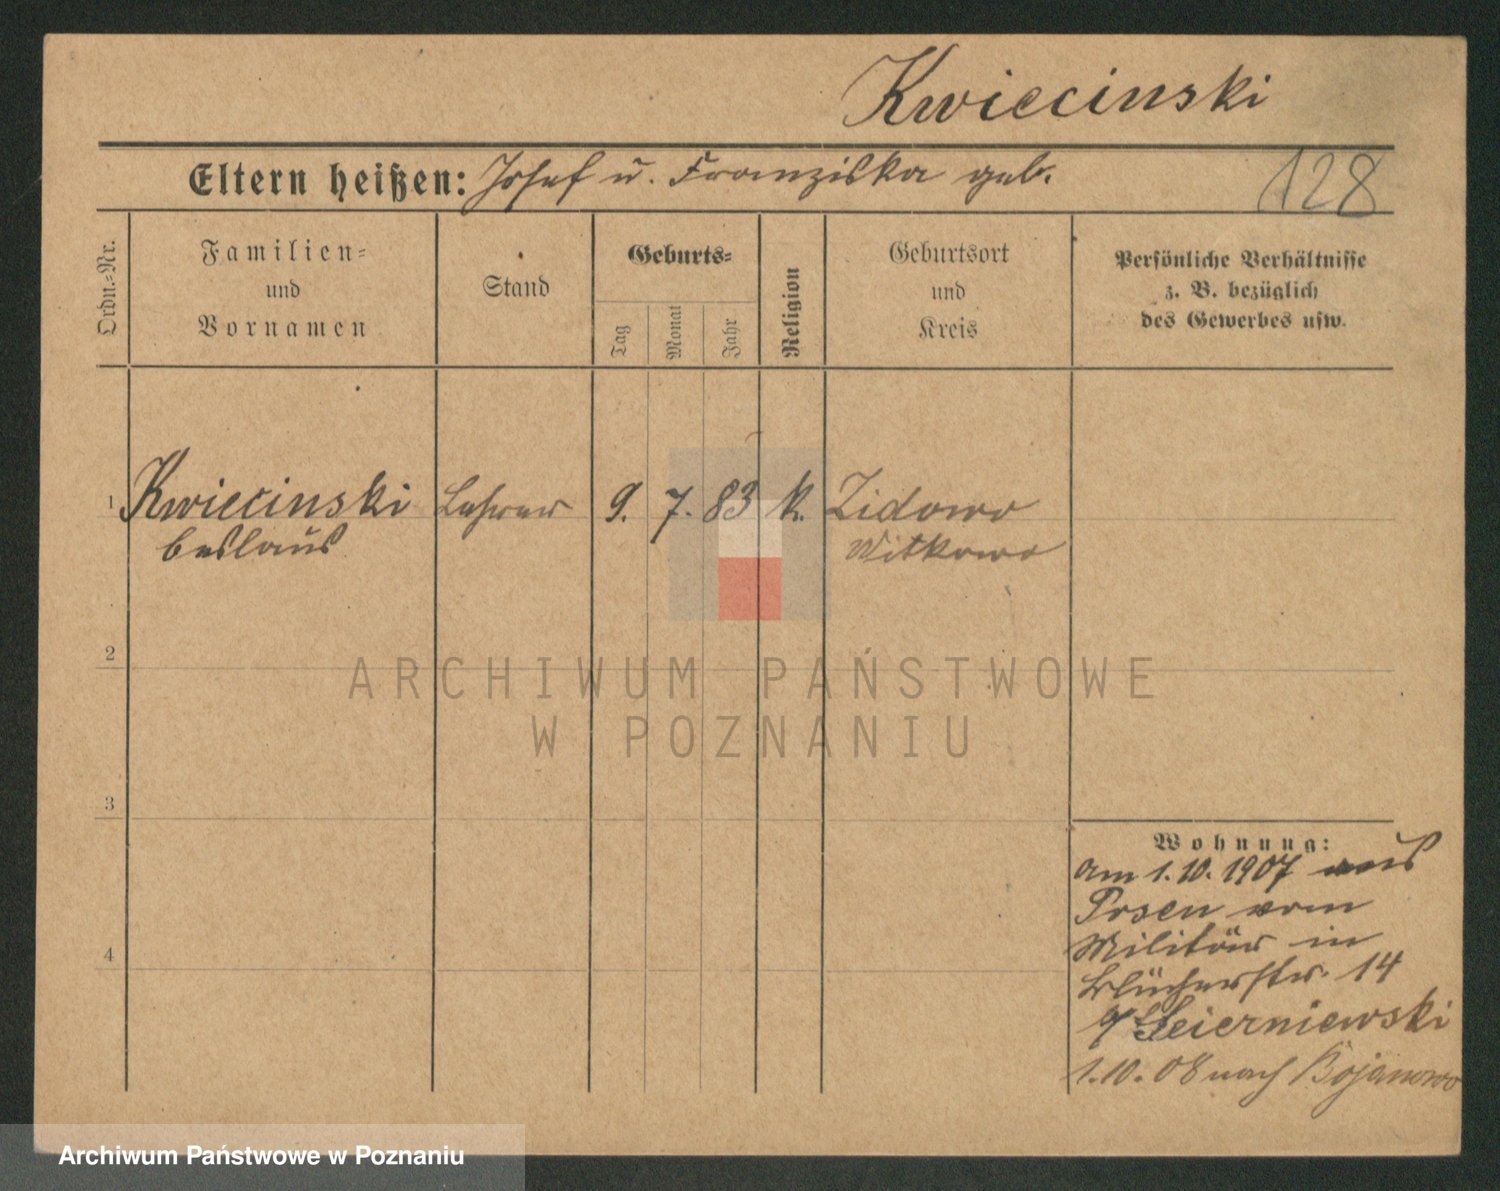 Kwiecinski
Eltern heißen: Josef u. Franziska geb.
128
Ordn.-Nr.
Familien-
und
Vornamen
Stand
Geburts-
Tag
Monat
Jahr
Religion
Geburtsort
und
Kreis
Persönliche Verhältnisse
z. B. bezüglich
des Gewerbes usw.
1 Kwiecinski Lehrer 9. 7. 83 k. Zidowo
beslaus Witkowo
2
3
4
Wohnung:
am 1.10.1907 aus
Posen vom
Militär in
Blücherstr. 14
1.10.08 nach Bojanowo
ARCHIWUM PAŃSTWOWE
W POZNANIU
Archiwum Państwowe w Poznaniu